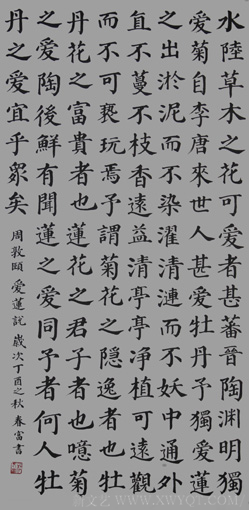 水陸草木之花可愛者甚蕃晉陶淵明獨
愛菊自李唐來世人甚愛牡丹予獨愛蓮
之出淤泥而不染濯清漣而不妖中通外
直不蔓不枝香遠益清亭亭净植可遠觀
而不可褻玩焉予謂菊花之隱逸者也牡
丹花之富貴者也蓮花之君子者也噫菊
之愛陶後鮮有聞蓮之愛同予者何人牡
丹之愛宜乎眾矣
周敦頤愛蓮說歲次丁酉之秋春富書